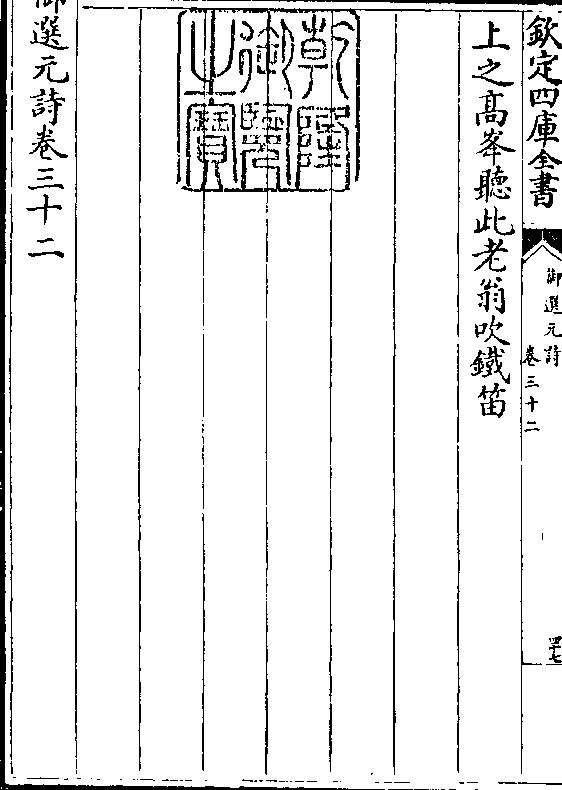 欽定四庫全書
御選元詩
卷三十二
四十七
上之高峯聽此老翁吹鐵笛
乾隆
御覽
之寶
御選元詩卷三十二